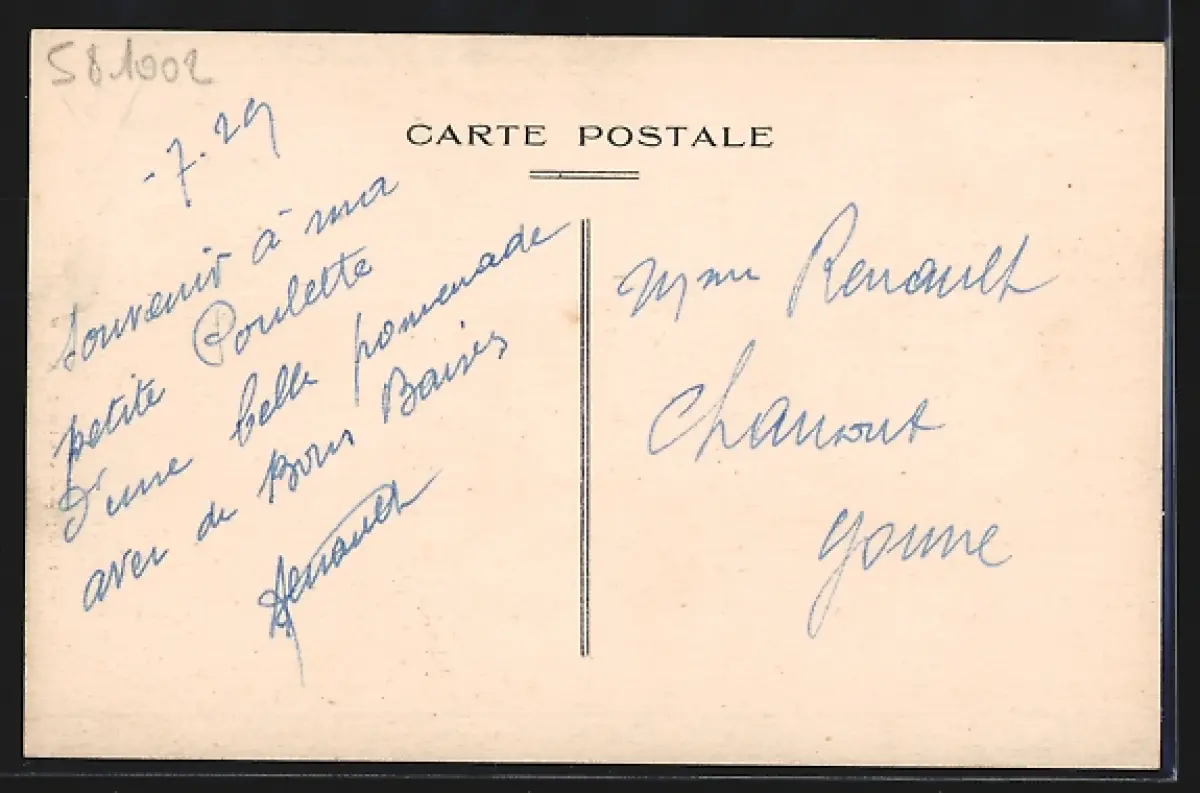 581002
CARTE POSTALE
-7.29
Souvenir à ma
petite Poulette
d'une belle pomenade
avec de Bons Baisers
Renault
Mme Renault
Chaumont
Yonne